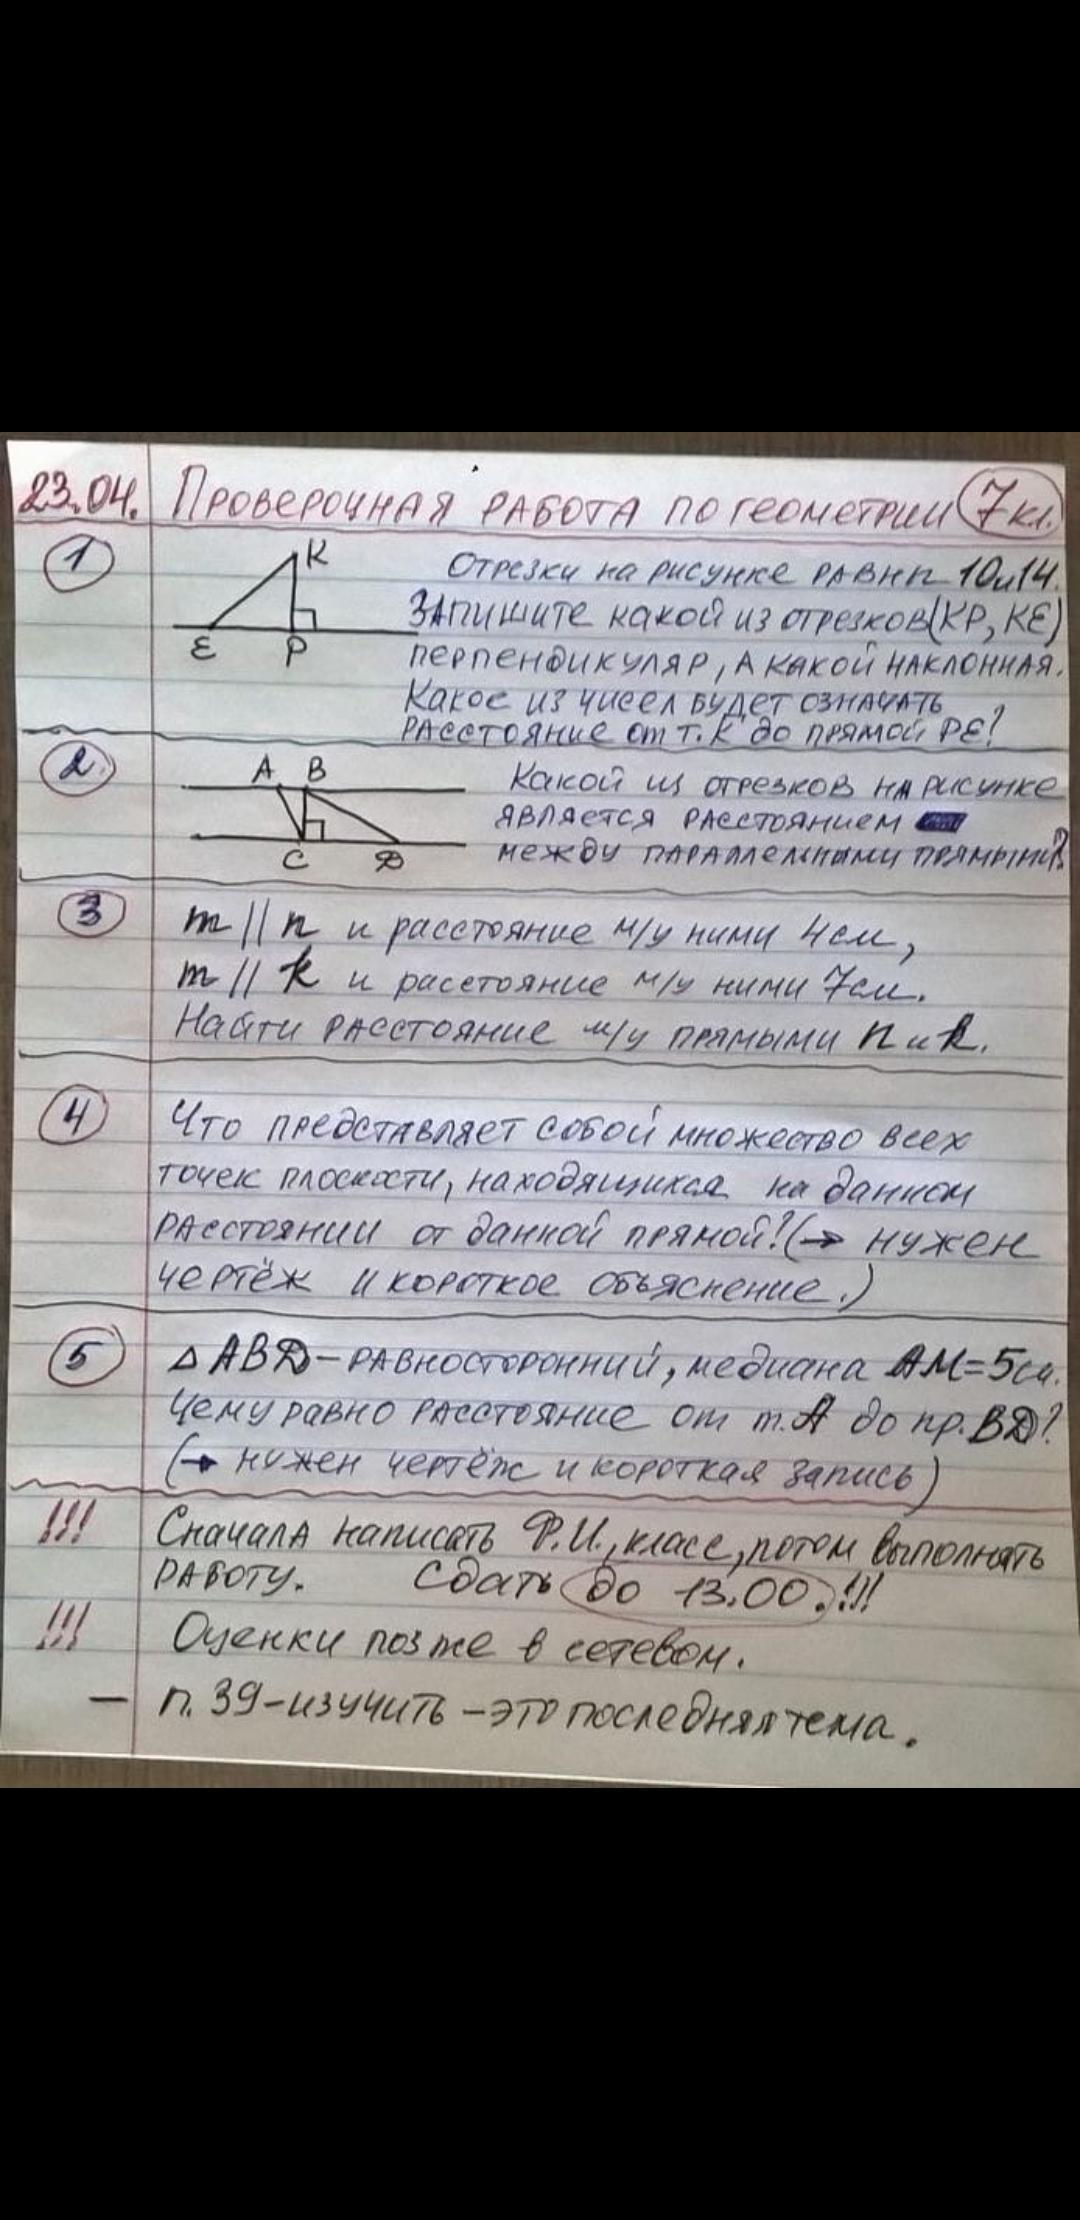 23.04. Проверочная работа по геометрии 7 кл.
1
K
E P
Отрезки на рисунке равны 10 и 14.
Запишите какой из отрезков (KP, KE)
перпендикуляр, а какой наклонная.
Какое из чисел будет означать
расстояние от т. K до прямой PE?
2.
A B
C D
Какой из отрезков на рисунке
является расстоянием
между параллельными прямыми?
3
m || n и расстояние м/у ними 4 см,
m || k и расстояние м/у ними 7 см.
Найти расстояние м/у прямыми n и k.
4
Что представляет собой множество всех
точек плоскости, находящихся на данном
расстоянии от данной прямой? (→ нужен
чертёж и короткое объяснение.)
5
△ ABD – равносторонний, медиана AM = 5 см.
Чему равно расстояние от т. A до пр. BD?
(→ нужен чертёж и короткая запись)
!!! Сначала написать Ф.И., класс, потом выполнять
работу. Сдать до 13.00. !!!
!!! Оценки позже в сетевом.
— п. 39 – изучить – это последняя тема.